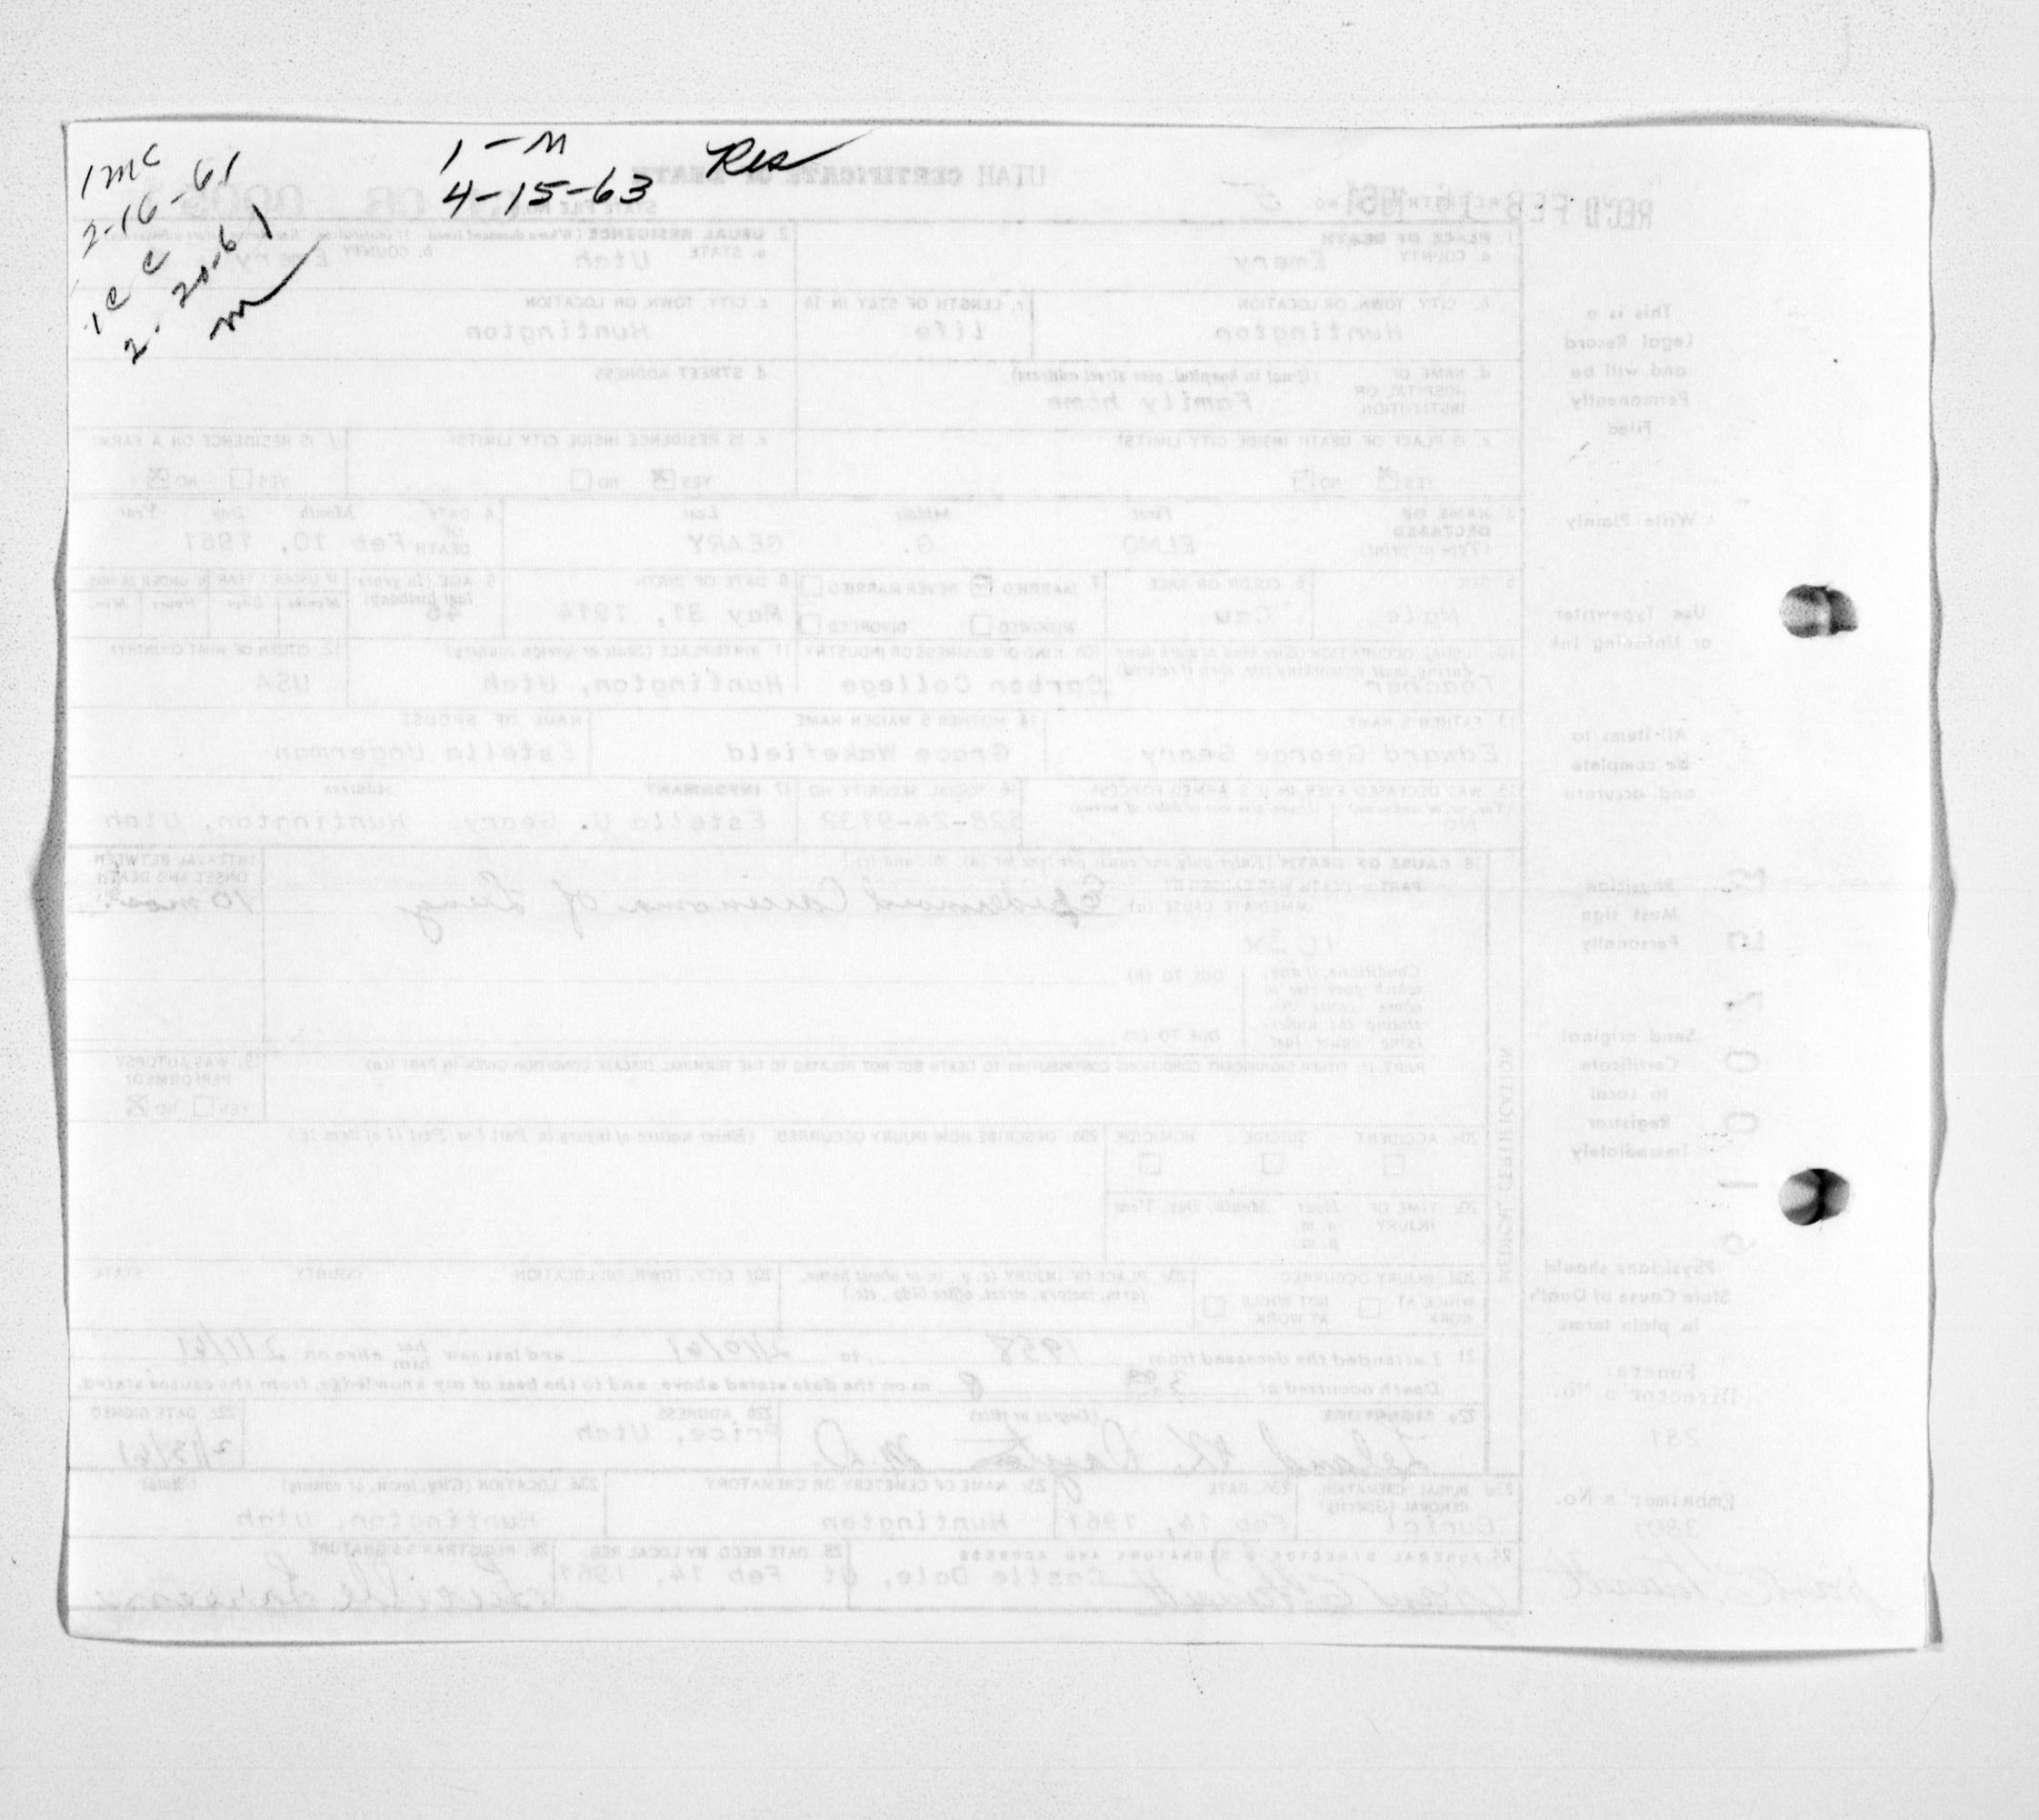 1mc
2-16-61
1 c c
2-20-61
m
1-m
4-15-63
Res
UTAH CERTIFICATE OF DEATH
REC'D FEB 1961
1. PLACE OF DEATH
a. COUNTY Emery
2. USUAL RESIDENCE
a. STATE Utah b. COUNTY Emery
b. CITY, TOWN, OR LOCATION Huntington
c. LENGTH OF STAY IN 1b Life
c. CITY, TOWN, OR LOCATION Huntington
d. NAME OF HOSPITAL OR INSTITUTION (If not in hospital, give street address) Family home
d. STREET ADDRESS
e. IS PLACE OF DEATH INSIDE CITY LIMITS? YES NO
e. IS RESIDENCE INSIDE CITY LIMITS? YES NO
f. IS RESIDENCE ON A FARM? YES NO
3. NAME OF DECEASED (Type or print) First Middle Last
ELMO G. GEARY
4. DATE OF DEATH Month Day Year
Feb 10, 1961
5. SEX Male
6. COLOR OR RACE Cau
7. MARRIED NEVER MARRIED
WIDOWED DIVORCED
8. DATE OF BIRTH May 31, 1914
9. AGE (In years last birthday) 46
10a. USUAL OCCUPATION Teacher
10b. KIND OF BUSINESS OR INDUSTRY Carbon College
11. BIRTHPLACE (State or foreign country) Huntington, Utah
12. CITIZEN OF WHAT COUNTRY? USA
13. FATHER'S NAME Edward George Geary
14. MOTHER'S MAIDEN NAME Grace Wakefield
NAME OF SPOUSE Estella Ungerman
15. WAS DECEASED EVER IN U.S. ARMED FORCES? No
16. SOCIAL SECURITY NO. 528-24-9132
17. INFORMANT Address
Estella U. Geary, Huntington, Utah
18. CAUSE OF DEATH
PART I. DEATH WAS CAUSED BY
IMMEDIATE CAUSE (a) Epidermoid Carcinoma of Lung
INTERVAL BETWEEN ONSET AND DEATH
10 mos.
DUE TO (b)
PART II. OTHER SIGNIFICANT CONDITIONS CONTRIBUTING TO DEATH BUT NOT RELATED TO THE TERMINAL DISEASE CONDITION GIVEN IN PART I(a)
19. WAS AUTOPSY PERFORMED? YES NO
20a. ACCIDENT SUICIDE HOMICIDE
20b. DESCRIBE HOW INJURY OCCURRED. (Enter nature of injury in Part I or Part II of item 18)
20c. TIME OF INJURY Hour Month, Day, Year
a. m.
p. m.
20d. INJURY OCCURRED
WHILE AT WORK NOT WHILE AT WORK
20e. PLACE OF INJURY (e.g., in or about home, farm, factory, street, office bldg., etc.)
20f. CITY, TOWN, OR LOCATION COUNTY STATE
21. I attended the deceased from 1958 to 2/10/61 and last saw her him alive on
Death occurred at m on the date stated above; and to the best of my knowledge, from the causes stated.
22a. SIGNATURE (Degree or title)
Leland K. Dayton M.D.
22b. ADDRESS Price, Utah
22c. DATE SIGNED 2/13/61
23a. BURIAL, CREMATION, REMOVAL (Specify) Burial
23b. DATE Feb 14, 1961
23c. NAME OF CEMETERY OR CREMATORY Huntington
23d. LOCATION (City, town, or county) (State) Huntington, Utah
24. FUNERAL DIRECTOR'S SIGNATURE AND ADDRESS
Castle Dale, Ut
25. DATE REC'D BY LOCAL REG. Feb 14, 1961
26. REGISTRAR'S SIGNATURE
MEDICAL CERTIFICATION
This is a
Legal Record
and will be
Permanently
Filed
Write Plainly
Use Typewriter
or Unfading Ink
All items to
be complete
and accurate
Physician
Must sign
Personally
Send original
Certificate
to Local
Registrar
Immediately
Physicians should
State Cause of Death
in plain terms
Funeral
Director's No.
281
Embalmer's No.